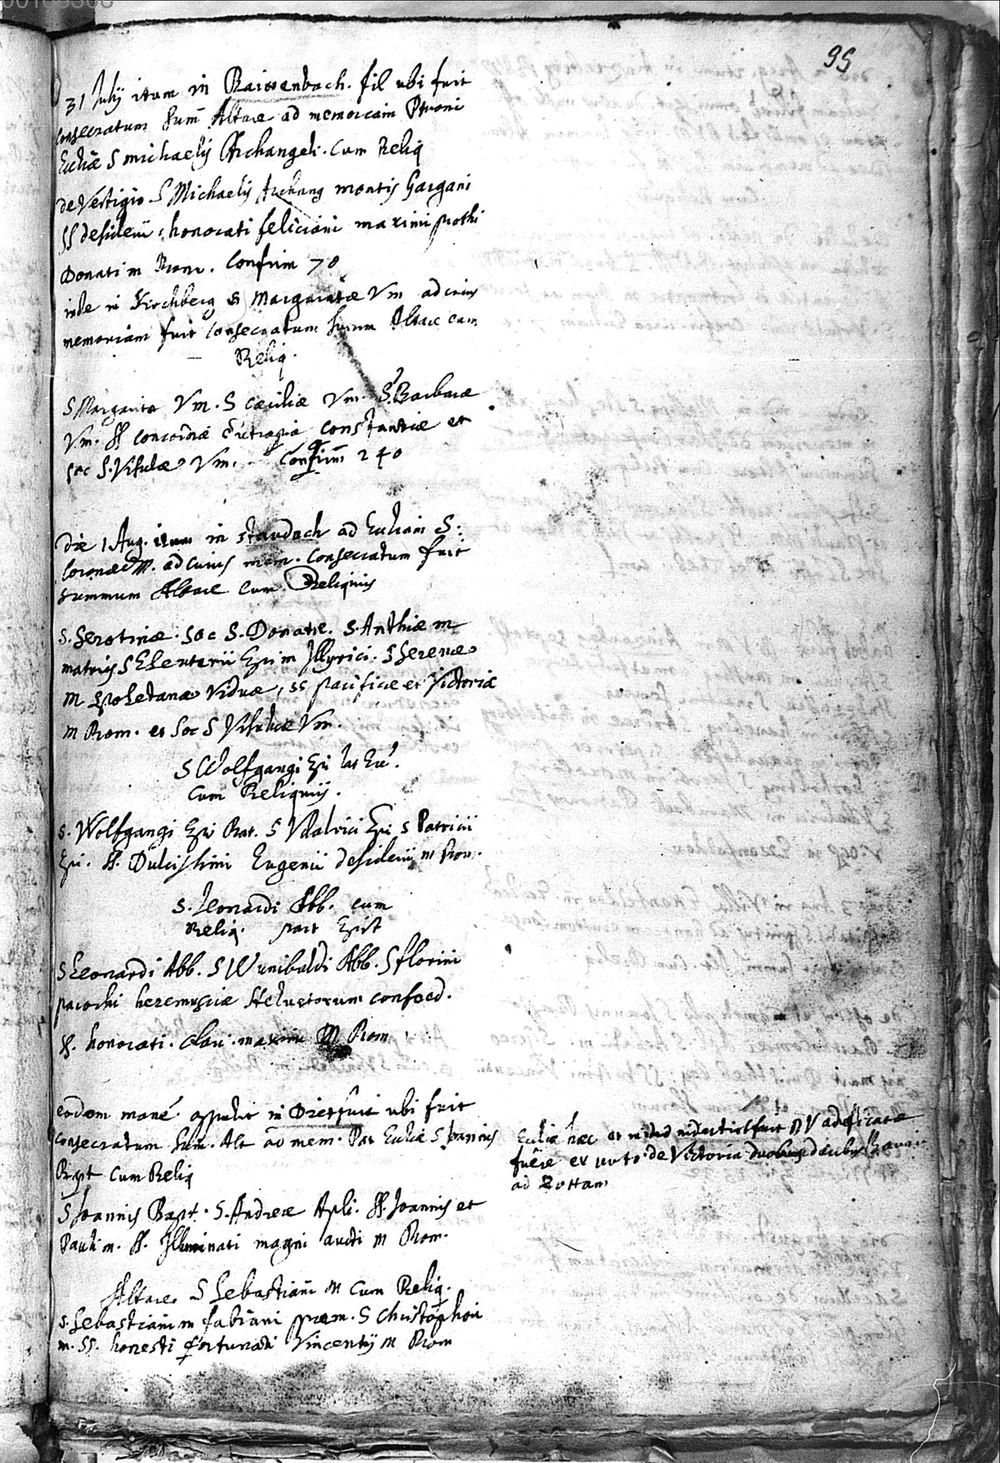 95
31 July itum in Raissenbach. fil ubi fuit
consecratum sum Altare ad memoriam Patroni
Eccliæ S Michaelis Archangeli. Cum Reliq
de Vestigio S Michaelis Archang montis Gargani
SS desiderii, honorati feliciani maximi prothi
Donati m Rom. Confirm 70
inde in Kirchberg S Margaritæ Vm ad cuius
memoriam fuit consecratum summ Altare cum
Reliq.
S Margarita Vm. S Cæciliæ Vm. S. Barbaræ
Vm. SS concordiæ constantiæ et
soc S. Vrsulæ Vm. Confirm 240
Die 1 Aug. itum in staudach ad Eccliam S:
Coronæ M. ad cuius mem. consecratum fuit
summum Altare cum Reliquiis
S. Serotinæ. soc S. Donatæ. S. Anthiæ m
matris S Eleuterii Epi m Illyrici. S Serenæ
M spoletanæ Viduæ, SS pacificæ et Victoriæ
M Rom. et soc S Vrsulæ Vm.
S Wolfgangi Epi lat Eu.
Cum Reliquiis.
S. Wolfgangi Epi Rat. S Vdalrici Epi S Patricii
Epi. SS. Dulcissimi Eugenii desiderii m Rom.
S. Leonardi Abb. cum
Reliq. part Epist
S Leonardi Abb. S Wunibaldi Abb. S florini
parochi Helvetorum confoed.
SS. honorati. clari. maximi M Rom
eodem mané appulit in Dietfurt ubi fuit
consecratum sum. Alt ad mem. Pat Eccliæ S Joannis
Bapt Cum Reliq
Eccliæ hæc et
fuere ex uoto de Victoria
ad Rottam
S Joannis Bapt. S. Andreæ Apli. SS. Joannis et
Pauli m. SS. Illuminati magni aucti M Rom.
Altare S Sebastiani M cum Reliq.
S. Sebastiani m fabiani ppæ m. S Christophori
m. SS. honesti fortunati Vincentij M Rom